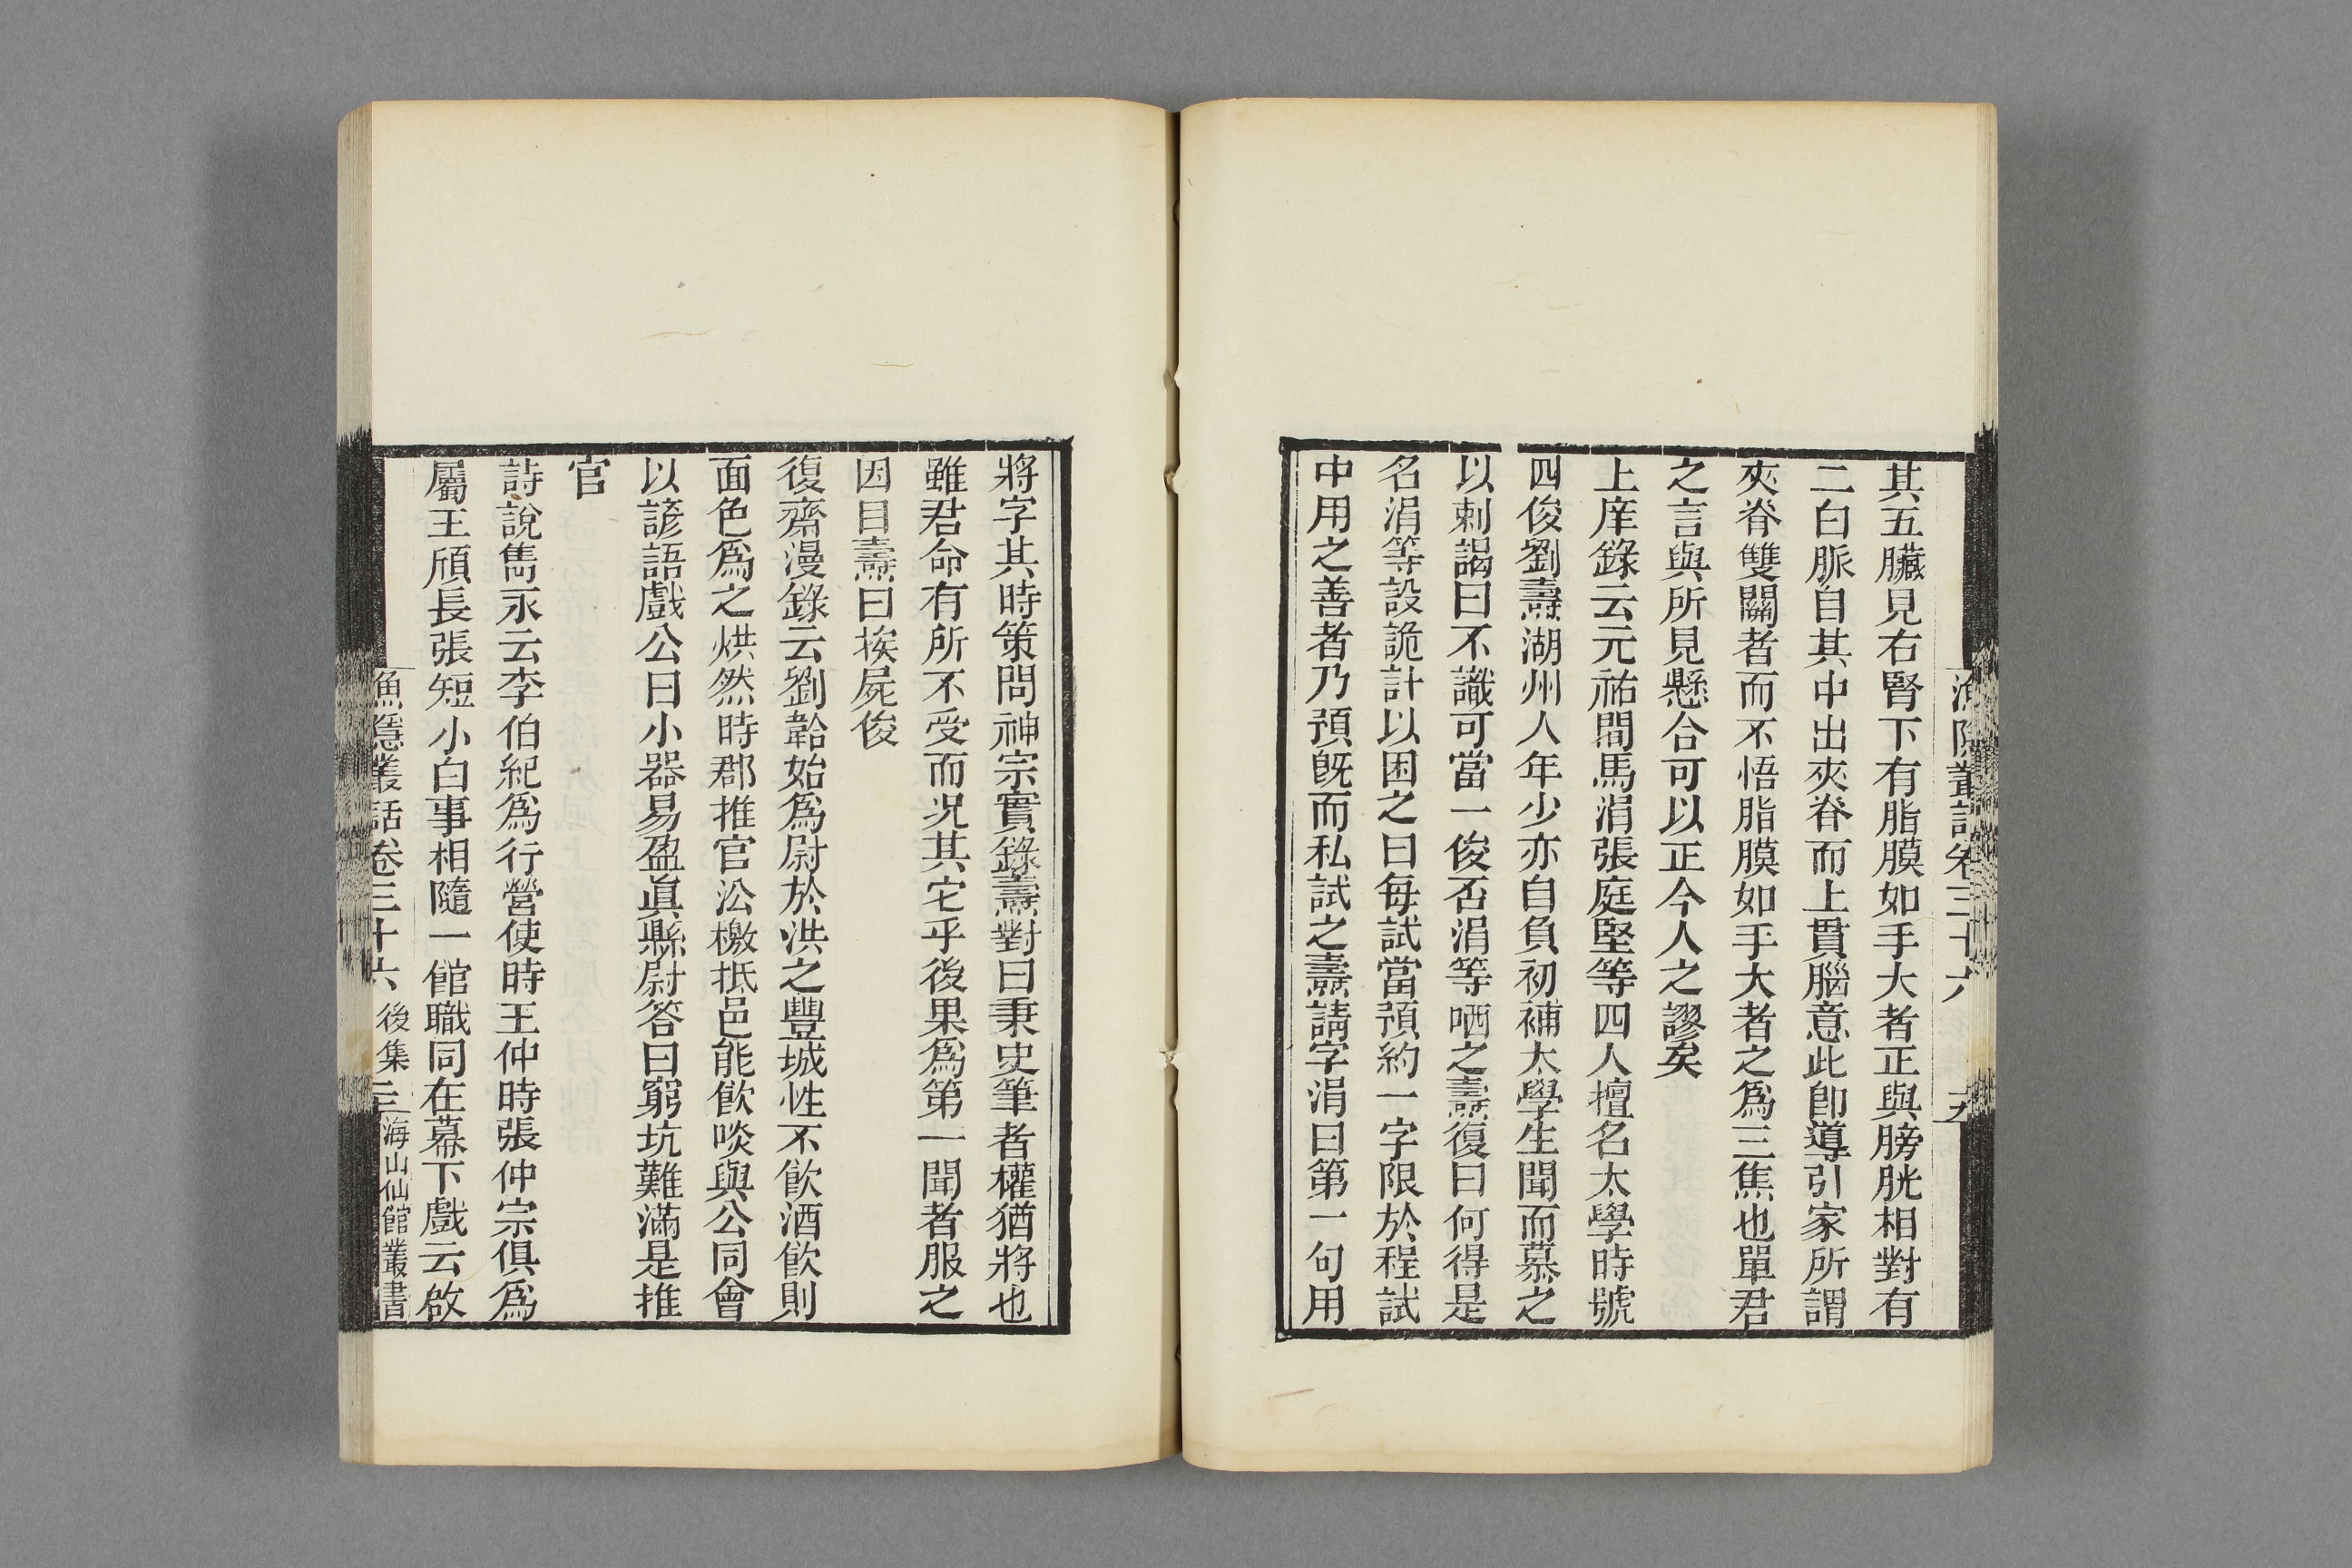 漁隱叢話卷三十六
其五臟見右腎下有脂膜如手大者正與膀胱相對有
二白脈自其中出夾脊而上貫腦意此卽導引家所謂
夾脊雙關者而不悟脂膜如手大者之爲三焦也單君
之言與所見懸合可以正今人之謬矣
上庠錄云元祐間馬涓張庭堅等四人擅名太學時號
四俊劉燾湖州人年少亦自負初補太學生聞而慕之
以刺謁曰不識可當一俊否涓等哂之燾復曰何得是
名涓等設詭計以困之曰每試當預約一字限於程試
中用之善者乃預旣而私試之燾請字涓曰第一句用
將字其時策問神宗實錄燾對曰秉史筆者權猶將也
雖君命有所不受而况其它乎後果爲第一聞者服之
因目燾曰挨屍俊
復齋漫錄云劉韐始爲尉於洪之豐城性不飲酒飲則
面色爲之烘然時郡推官㳂檄抵邑能飲啖與公同會
以諺語戲公曰小器易盈眞縣尉答曰窮坑難滿是推
官
詩說雋永云李伯紀爲行營使時王仲時張仲宗俱爲
屬王頎長張短小白事相隨一館職同在幕下戲云啟
漁隱叢話卷三十六 後集 三 海山仙館叢書